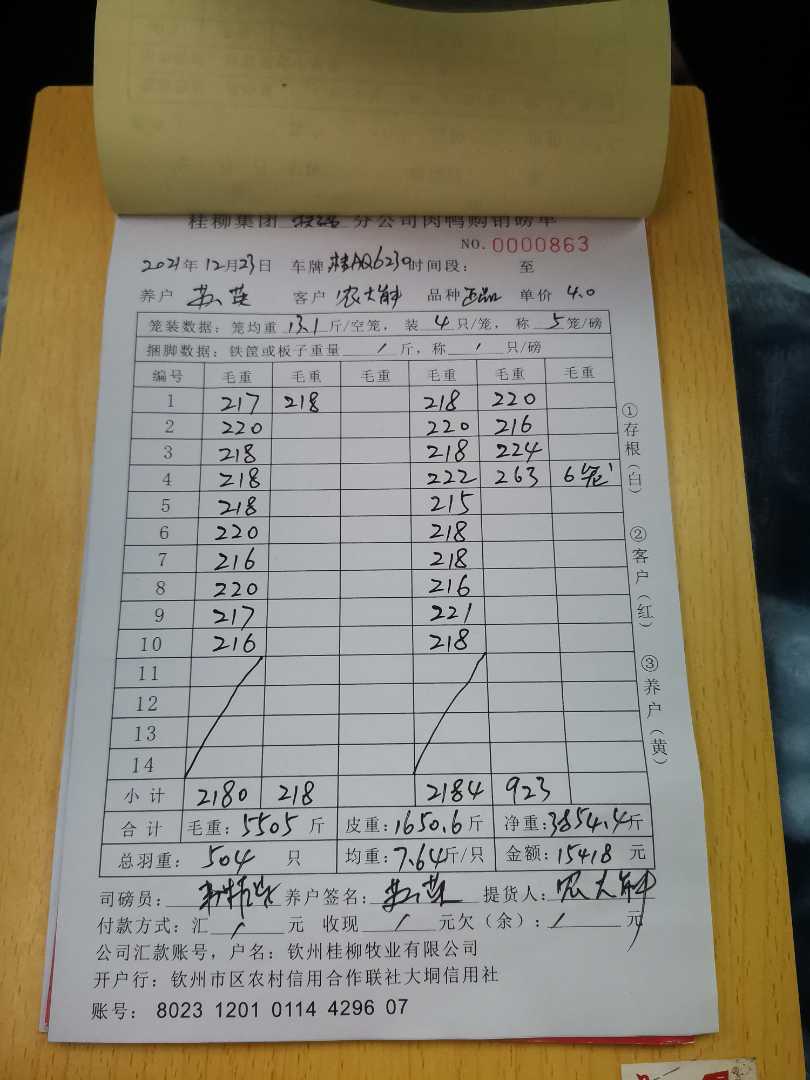 桂柳集团 分公司肉鸭购销磅单
NO. 0000863
2021年12月23日 车牌 桂AQ6230 时间段： 至
养户 客户 农大 品种 正品 单价 4.0
笼装数据：笼均重 13.1 斤/空笼，装 4 只/笼，称 5 笼/磅
捆脚数据：铁筐或板子重量 / 斤，称 / 只/磅
编号 毛重 毛重 毛重 毛重 毛重 毛重
1 217 218 218 220
2 220 220 216
3 218 218 224
4 218 222 263 6笼
5 218 215
6 220 218
7 216 218
8 220 216
9 217 221
10 216 218
11
12
13
14
小计 2180 218 2184 923
合计 毛重：5505 斤 皮重：1650.6 斤 净重：3854.4 斤
总羽重：504 只 均重：7.64 斤/只 金额：15418 元
司磅员： 养户签名： 提货人：农大
付款方式：汇 / 元 收现 / 元欠（余）：/ 元
公司汇款账号，户名：钦州桂柳牧业有限公司
开户行：钦州市区农村信用合作联社大垌信用社
账号： 8023 1201 0114 4296 07
①存根（白）
②客户（红）
③养户（黄）